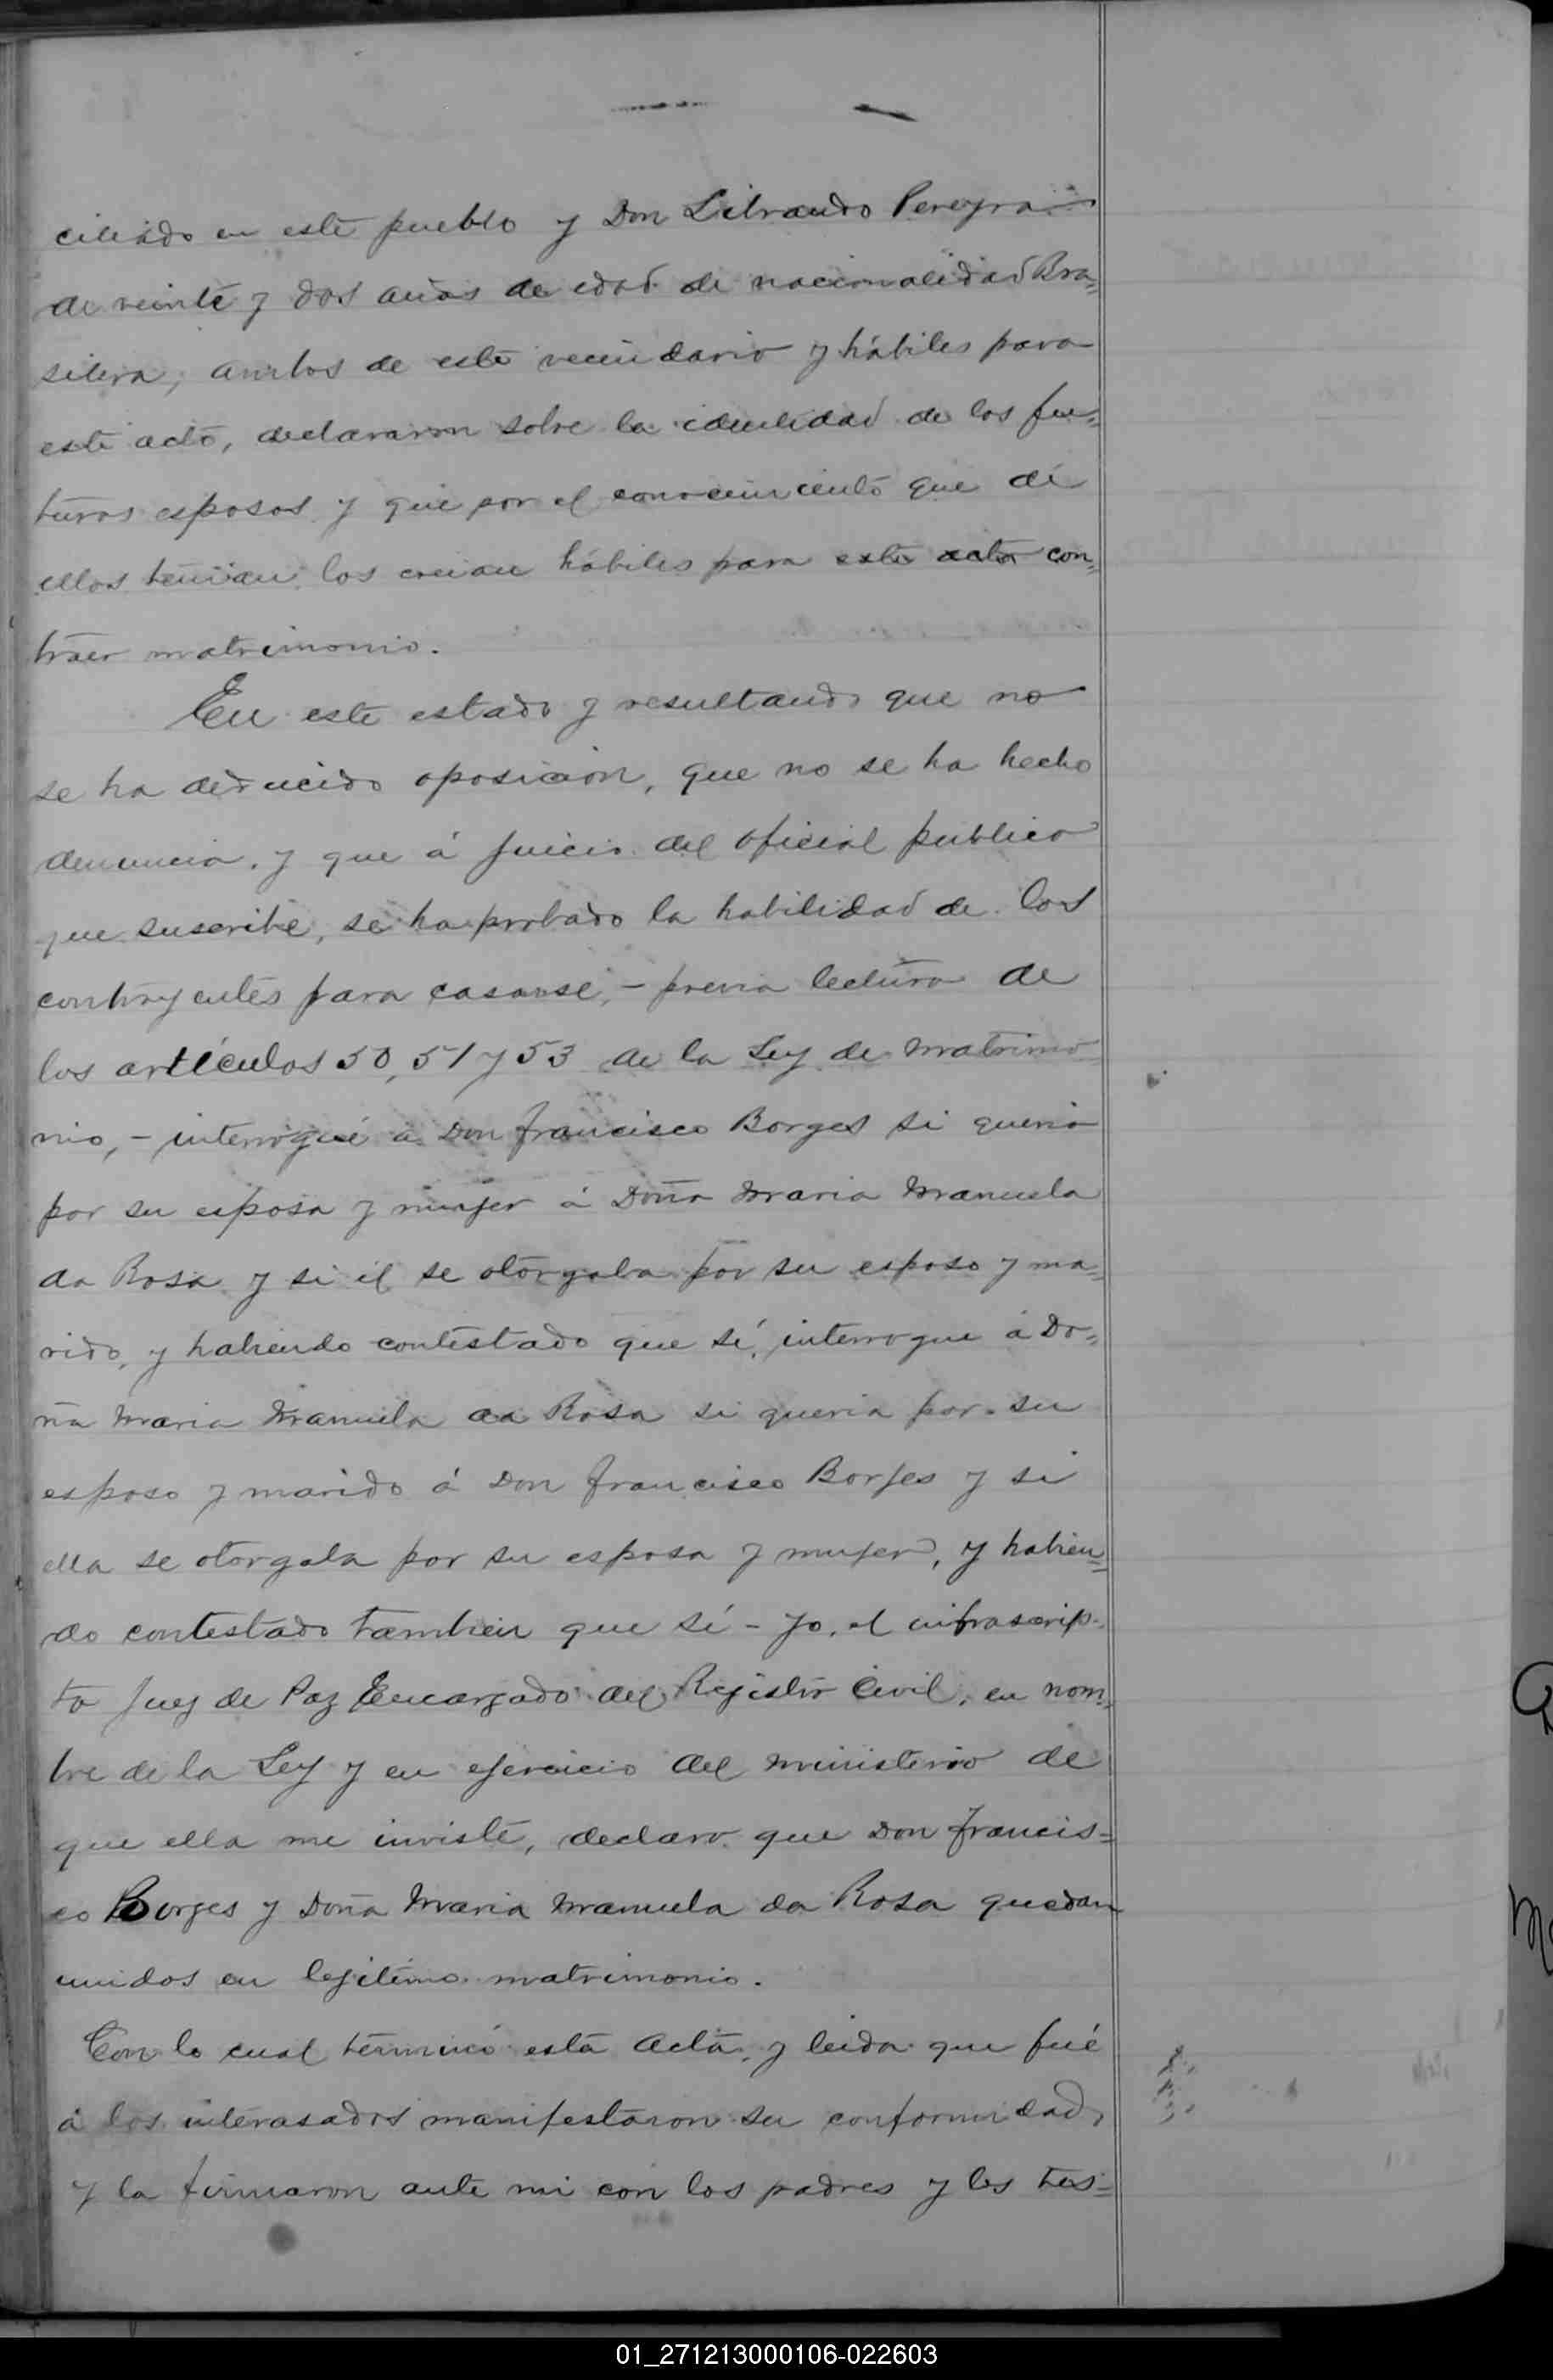 ciliado en este pueblo y Don Librando Pereyra
de veinte y dos años de edad de nacionalidad Bra=
silera, ambos de este vecindario y hábiles para
este acto, declararon sobre la identidad de los fu=
turos esposos y que por el conocimiento que de
ellos tenian los creian hábiles para este acto con=
traer matrimonio.
En este estado y resultando que no
se ha deducido oposicion, que no se ha hecho
denuncia y que á juicio del oficial publico
que suscribe, se ha probado la habilidad de los
contrayentes para casarse, - previa lectura de
los artículos 50, 51 y 53 de la Ley de matrimo
nio, - interrogué a Don Francisco Borges si queria
por su esposa y mujer á Doña Maria Manuela
da Rosa y si él se otorgaba por su esposo y ma=
rido, y habiendo contestado que sí, interrogue á Do=
ña Maria Manuela da Rosa si queria por su
esposo y marido á Don Francisco Borjes y si
ella se otorgaba por su esposa y mujer, y habien=
do contestado tambien que sí - Yo, el infrascrip-
to Juez de Paz Encargado del Registro Civil, en nom=
bre de la Ley y en ejercicio del ministerio de
que ella me inviste, declaro que Don Francis=
co Borges y Doña Maria Manuela da Rosa quedan
unidos en legitimo matrimonio.
Con lo cual terminó esta acta, y leida que fué
á los interasados manifestaron su conformidad,
y la firmaron ante mi con los padres y los tes=
01_271213000106-022603